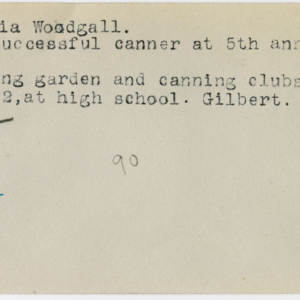 ia Woodgall.
uccessful canner at 5th ann
ng garden and canning clubs
2,at high school. Gilbert.
90